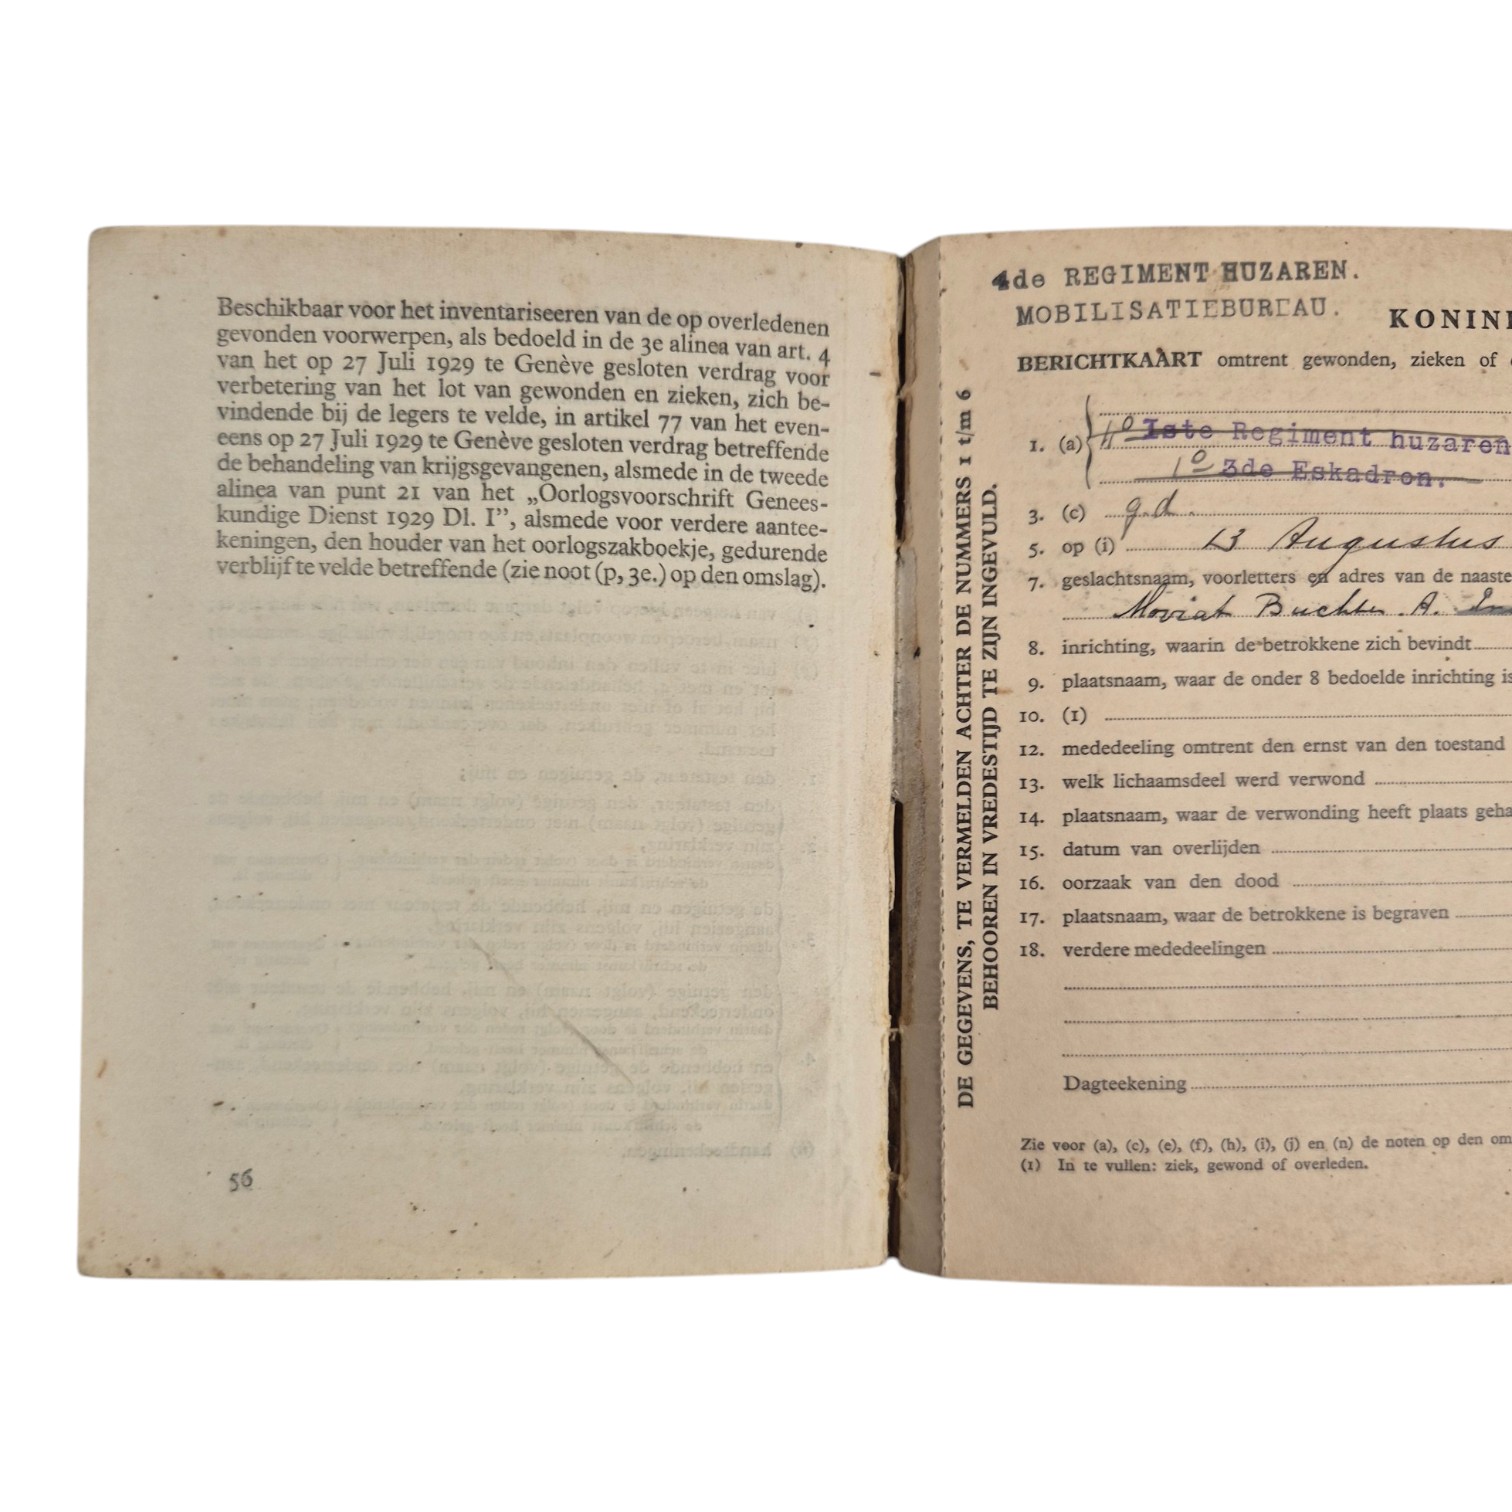 Beschikbaar voor het inventariseeren van de op overledenen
gevonden voorwerpen, als bedoeld in de 3e alinea van art. 4
van het op 27 Juli 1929 te Genève gesloten verdrag voor
verbetering van het lot van gewonden en zieken, zich be-
vindende bij de legers te velde, in artikel 77 van het even-
eens op 27 Juli 1929 te Genève gesloten verdrag betreffende
de behandeling van krijgsgevangenen, alsmede in de tweede
alinea van punt 21 van het „Oorlogsvoorschrift Genees-
kundige Dienst 1929 Dl. I”, alsmede voor verdere aantee-
keningen, den houder van het oorlogszakboekje, gedurende
verblijf te velde betreffende (zie noot (p, 3e.) op den omslag).
56
DE GEGEVENS, TE VERMELDEN ACHTER DE NUMMERS 1 t/m 6
BEHOOREN IN VREDESTIJD TE ZIJN INGEVULD.
4de REGIMENT HUZAREN.
MOBILISATIEBUREAU.
KONIN
BERICHTKAART omtrent gewonden, zieken of
1. (a) 4º 1ste Regiment huzaren
1º 3de Eskadron.
3. (c) g.d.
5. op (i) 13 Augustus
7. geslachtsnaam, voorletters en adres van de naaste
Buchter A.
8. inrichting, waarin de betrokkene zich bevindt
9. plaatsnaam, waar de onder 8 bedoelde inrichting is
10. (1)
12. mededeeling omtrent den ernst van den toestand
13. welk lichaamsdeel werd verwond
14. plaatsnaam, waar de verwonding heeft plaats geha
15. datum van overlijden
16. oorzaak van den dood
17. plaatsnaam, waar de betrokkene is begraven
18. verdere mededeelingen
Dagteekening
Zie voor (a), (c), (e), (f), (h), (i), (j) en (n) de noten op den om
(1) In te vullen: ziek, gewond of overleden.